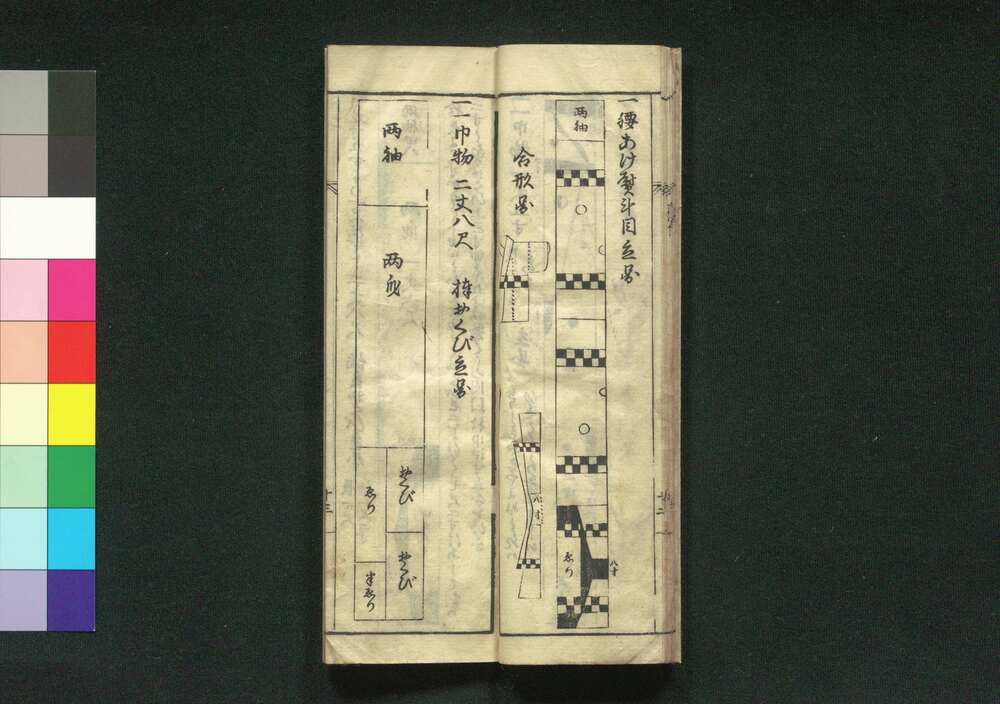 一 腰あけ熨斗目立図
両袖
ゑり
八寸
合形図
八寸
十二
一 巾物 二丈八尺 捧おくび立図
両袖
両身
おくび
おくび
ゑり
半ゑり
十三